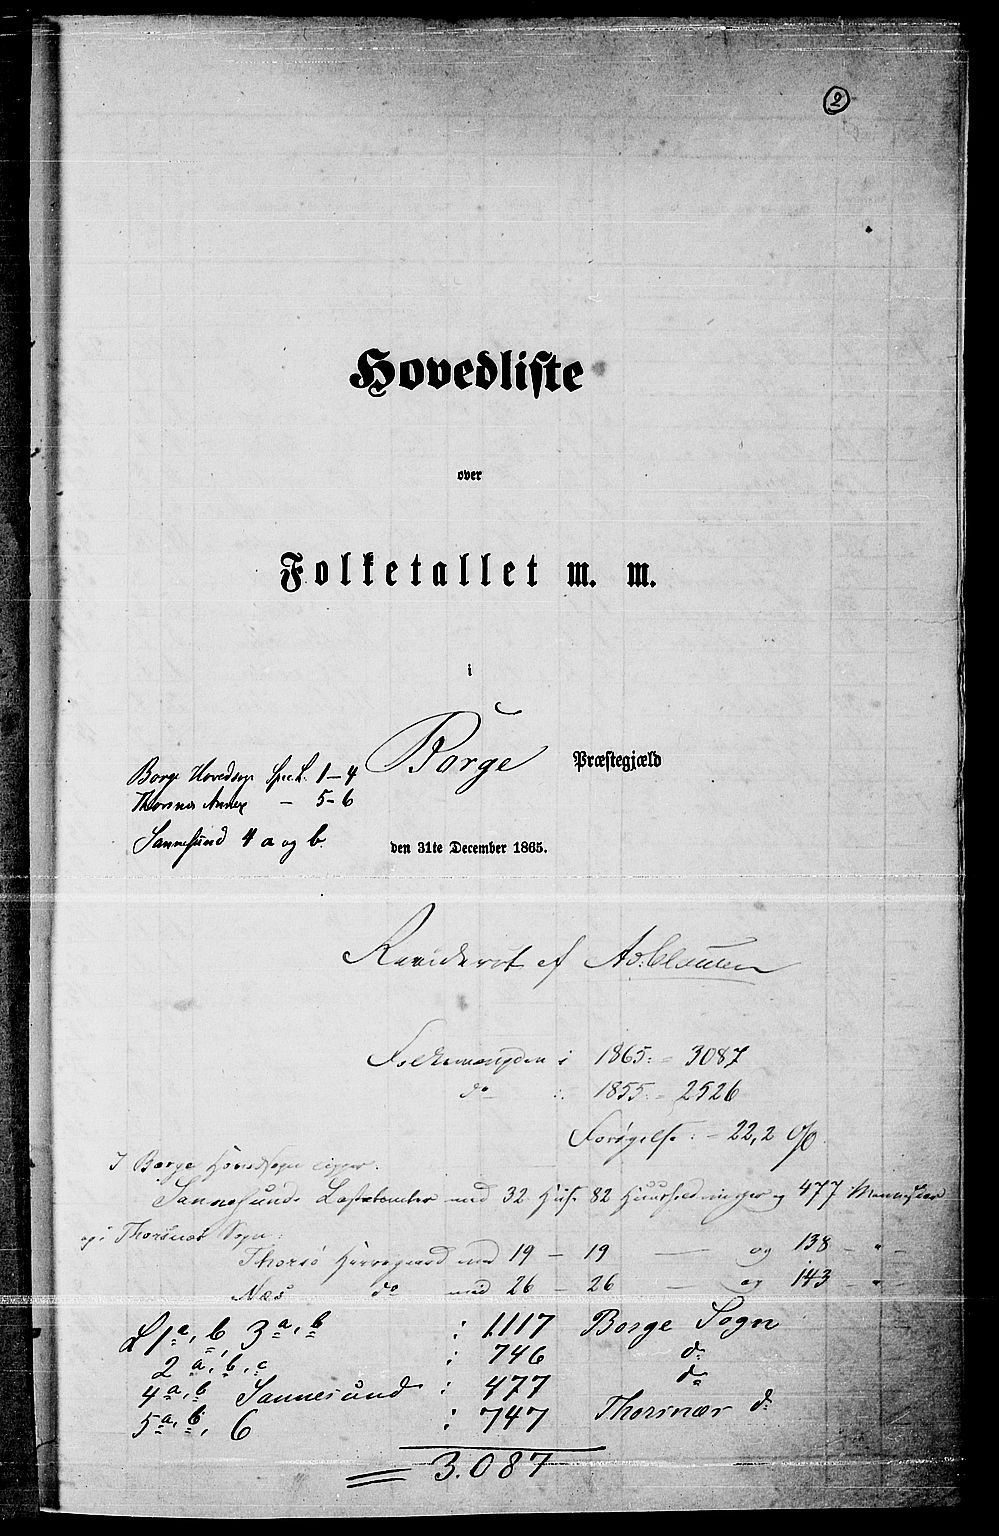 2
Hovedliste
over
Folketallet m. m.
i
Borge Præstegjæld
Borge Hovedsogn Specl. 1-4
Thorsnes Annex — 5-6
Sannesund 4 a og b
den 31te December 1865.
Revideret af Ad. Clausen
Folkemængden i 1865: = 3087
do : 1855: = 2526
Forøgelse: = 22,2 %
I Borge Hovedsogn ligger:
Sannesunds Ladested med 32 Huse 82 Huusholdninger og 477 Mennesker
og i Thorsnæs Sogn:
Thorsø Herregaard med 19 — 19 — og 138 — " —
Næs do med 26 — 26 — og 143 — " —
L 1 a, b, 3 a, b : 1117 Borge Sogn
2 a, b, c : 746 do
4 a, b Sannesund : 477 do
5 a, b, 6 : 747 Thorsnæs do
3.087